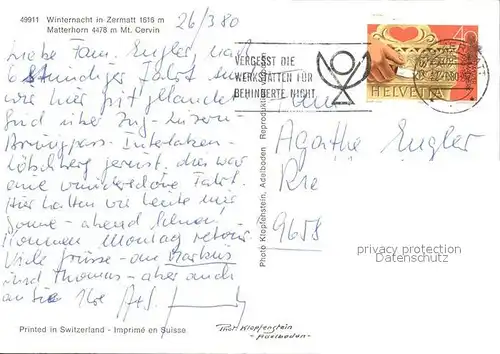 49911 Winternacht in Zermatt 1616 m
Matterhorn 4478 m Mt. Cervin
26/3 80
Liebe Fam. Engler, nach
6 stündiger Fahrt sind
wir hier gut gelandet.
Sind über Zug-Luzern-
Brünigpass-Interlaken-
Lötschberg gereist, das war
eine wunderschöne Fahrt.
Hier hatten wir heute mir
Sonne - abend Schnee!
Kommen Montag retour
Viele Grüsse - an Markus
und Thomas - aber auch
an Sie Ihre
VERGESST DIE
WERKSTÄTTEN FÜR
BEHINDERTE NICHT
HELVETIA
Agathe Engler
9658
privacy protection
Datenschutz
Photo Klopfenstein, Adelboden
Printed in Switzerland - Imprimé en Suisse
Photo Klopfenstein
-Adelboden-